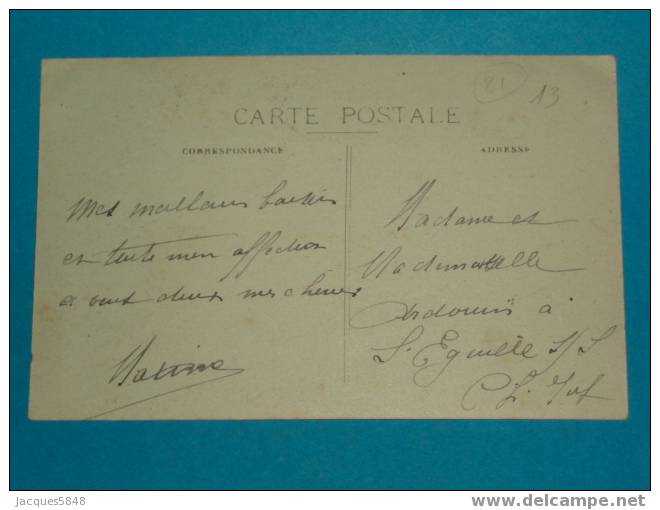 21
13
CARTE POSTALE
CORRESPONDANCE
ADRESSE
Mes meilleurs baisers
et toute mon affection
a vous deux mes chéries
Madame et
Mademoiselle
Ardouin à
St Eguille S/S
Ch. Inf
Jacques5848
delcampe.net